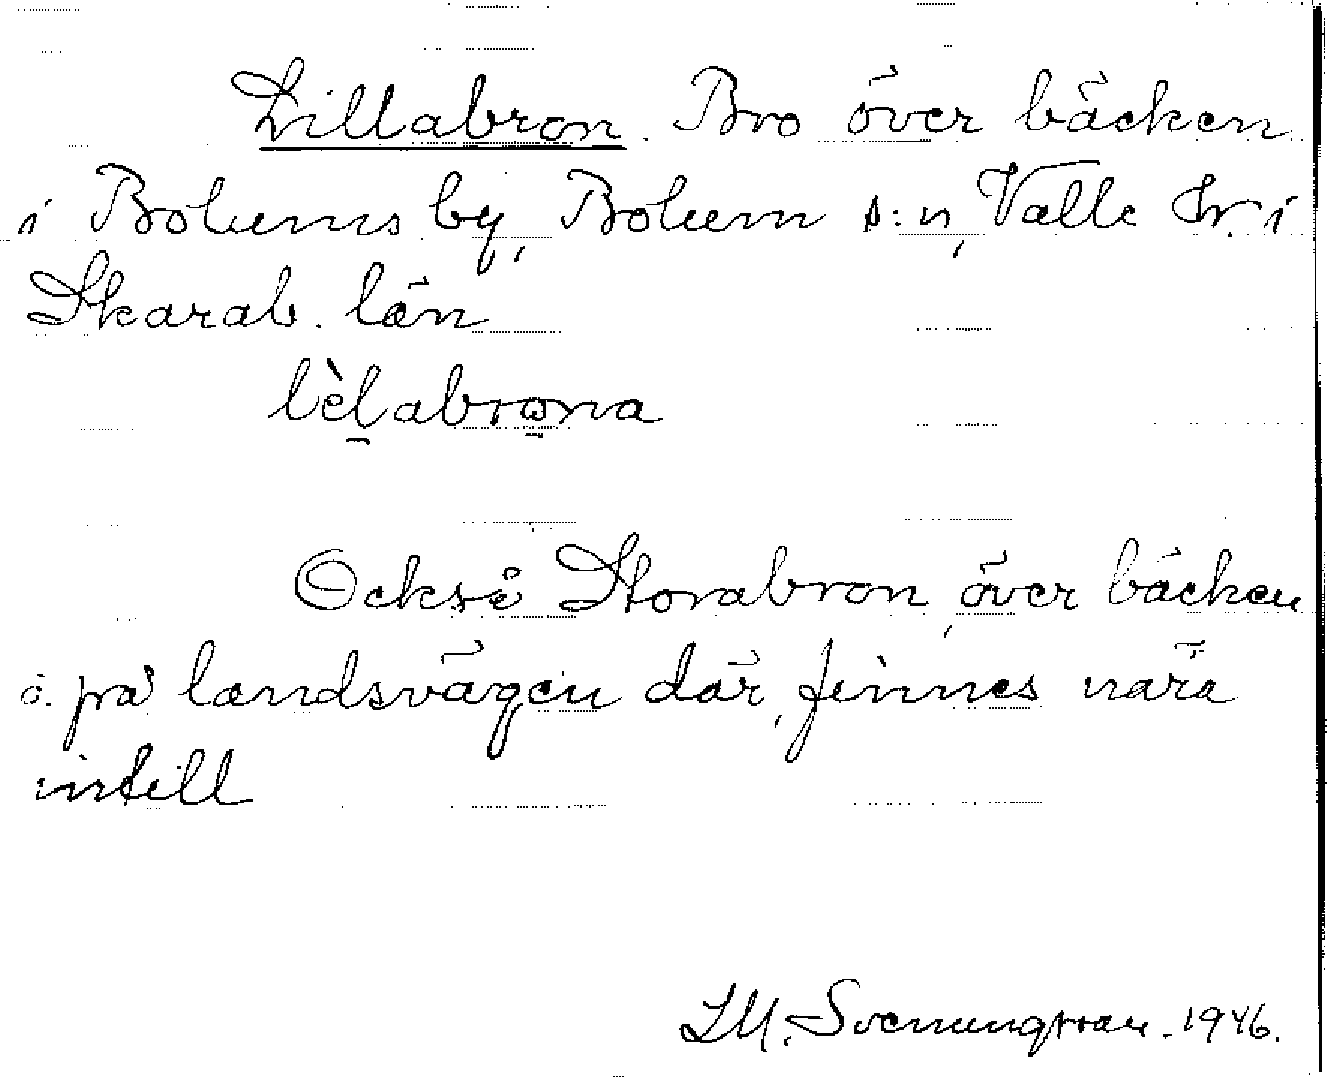 Lillabron. Bro över bäcken
i Bolums by, Bolum s:n, Valle hr. i
Skarab. län
lèlabrona
Också Storabron, över bäcken
å. på landsvägen där, finnes nära
intill
LM. Svenungsson. 1946.